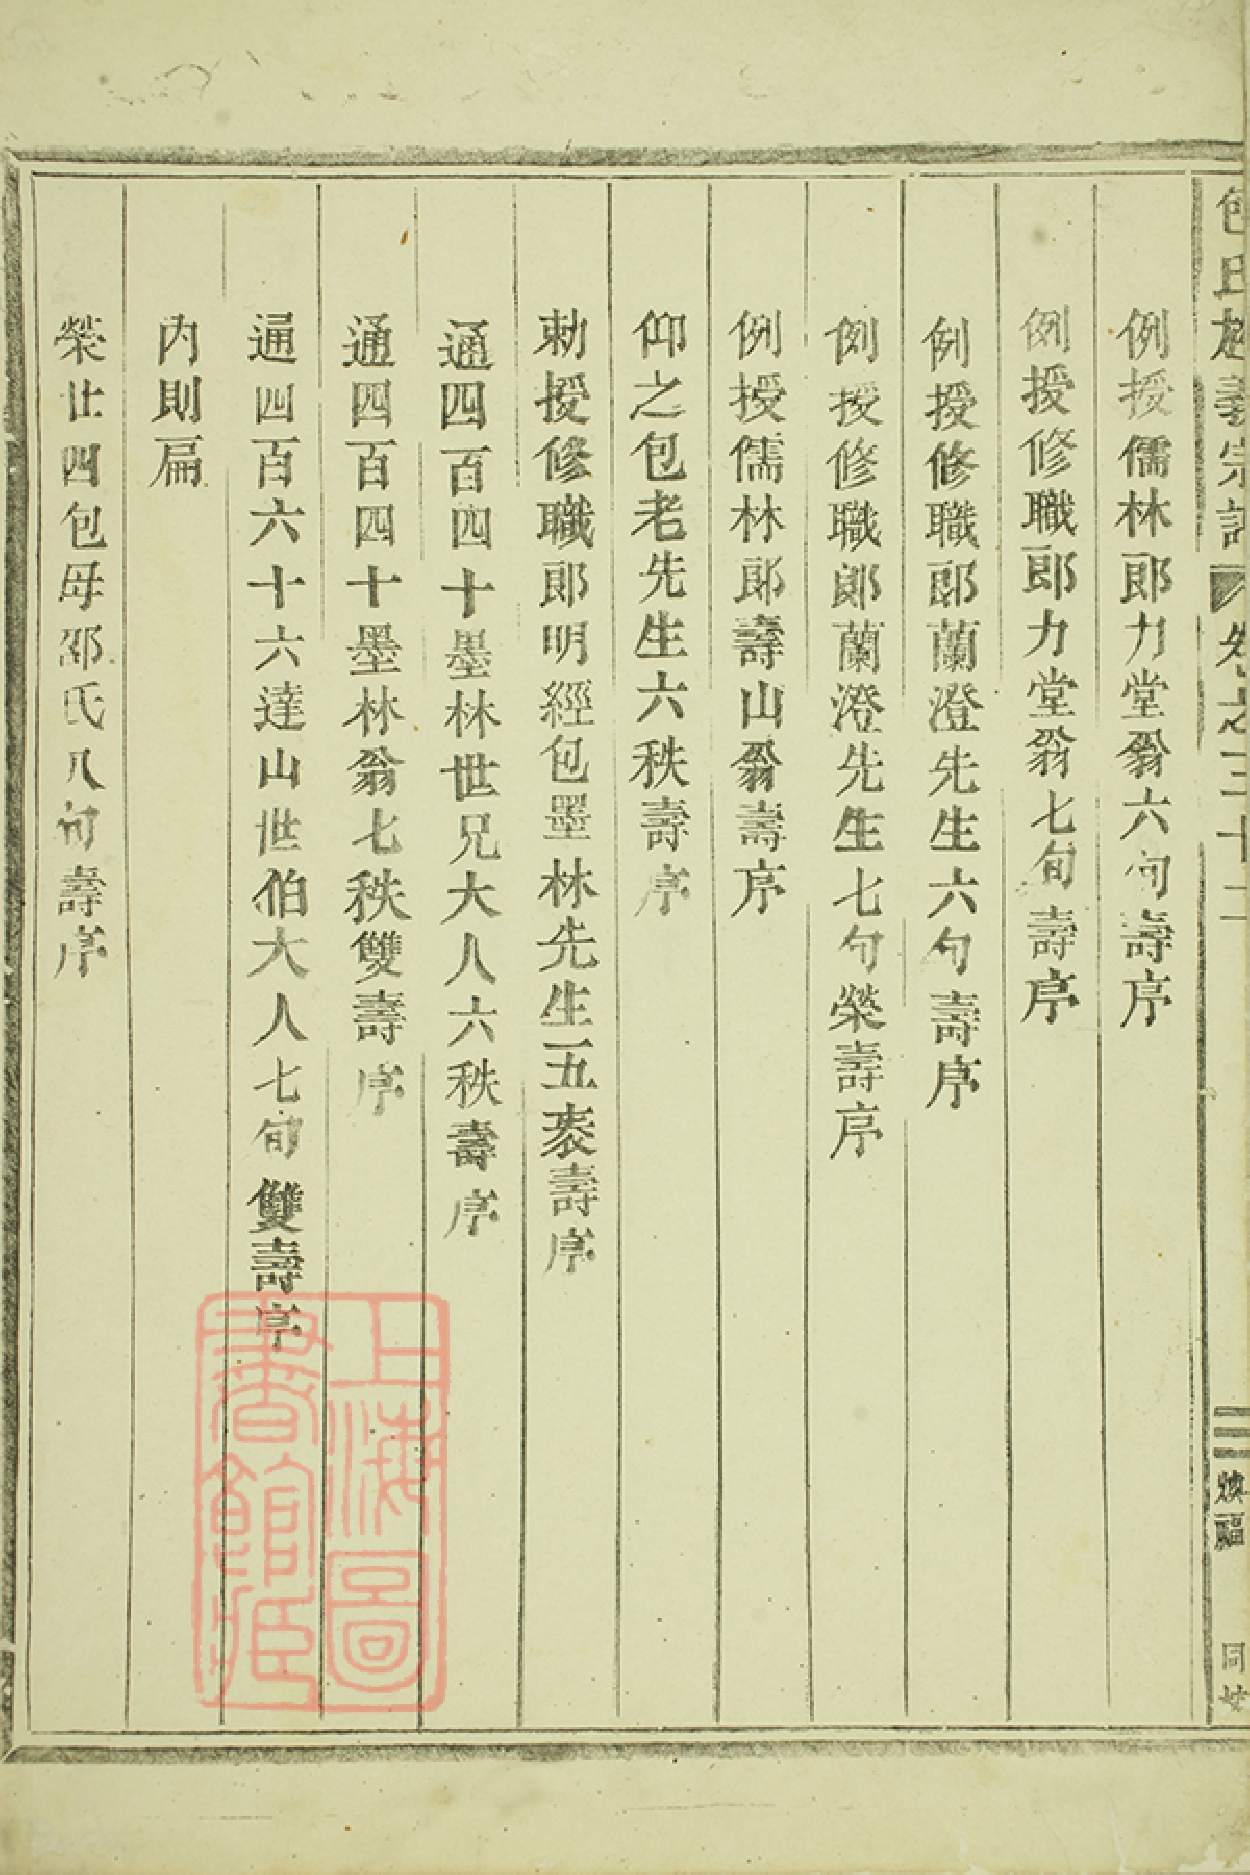 包氏 義宗譜 卷之三十二
例授儒林郎力堂翁六旬壽序
例授修職郎力堂翁七旬壽序
例授修職郎蘭澄先生六旬壽序
例授修職郎蘭澄先生七旬榮壽序
例授儒林郎壽山翁壽序
仰之包老先生六秩壽序
勅授修職郎明經包墨林先生五袠壽序
通四百四十墨林世兄大人六秩壽序
通四百四十墨林翁七秩雙壽序
通四百六十六達山世伯大人七旬雙壽序
内則扁
榮廿四包母邵氏八旬壽序
上海圖書館藏